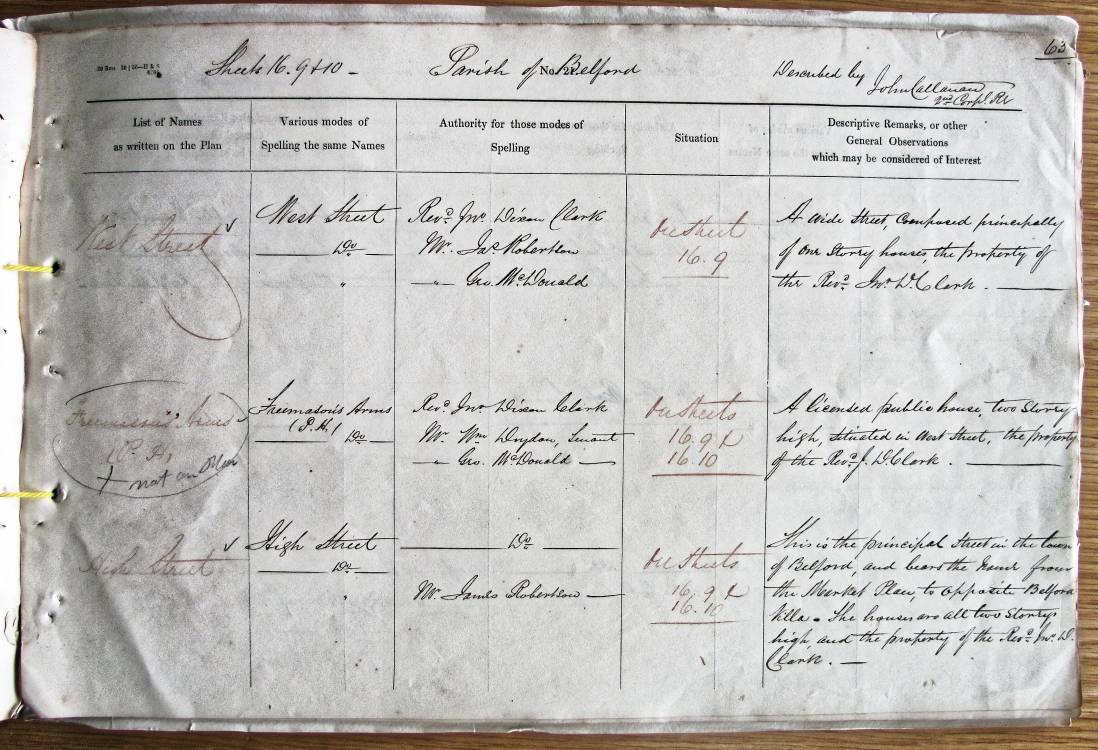 63
Sheets 16. 9 & 10 -
Parish of Belford
No. 21.
Described by
John Callanan
2nd Corpl. RE
List of Names
as written on the Plan
Various modes of
Spelling the same Names
Authority for those modes of
Spelling
Situation
Descriptive Remarks, or other
General Observations
which may be considered of Interest
West Street
West Street
Do
"
Revd. Jno. Dixon Clark
Mr. Jas. Robertson
-"- Geo. McDonald
On Sheet
16. 9
A wide Street, composed principally
of one Storry houses, the property of
the Revd. Jno. D. Clark.
Freemason's Arms
(P. H.)
+ not on Plan
Freemason's Arms
(P. H.) Do
Revd. Jno. Dixon Clark
Mr. Wm. Dryden, Tenant
-"- Geo. McDonald
On Sheets
16. 9 &
16. 10
A licensed public house, two Storry
high, situated in West Street, the property
of the Revd. J. D. Clark.
High Street
High Street
Do
"
Do
Mr. James Robertson
On Sheets
16. 9 &
16. 10
This is the principal Street in the town
of Belford, and bears the Name from
the Market Place, to opposite Belford
Villa. The houses are all two Storrys
high, and the property of the Revd. Jno. D.
Clark.